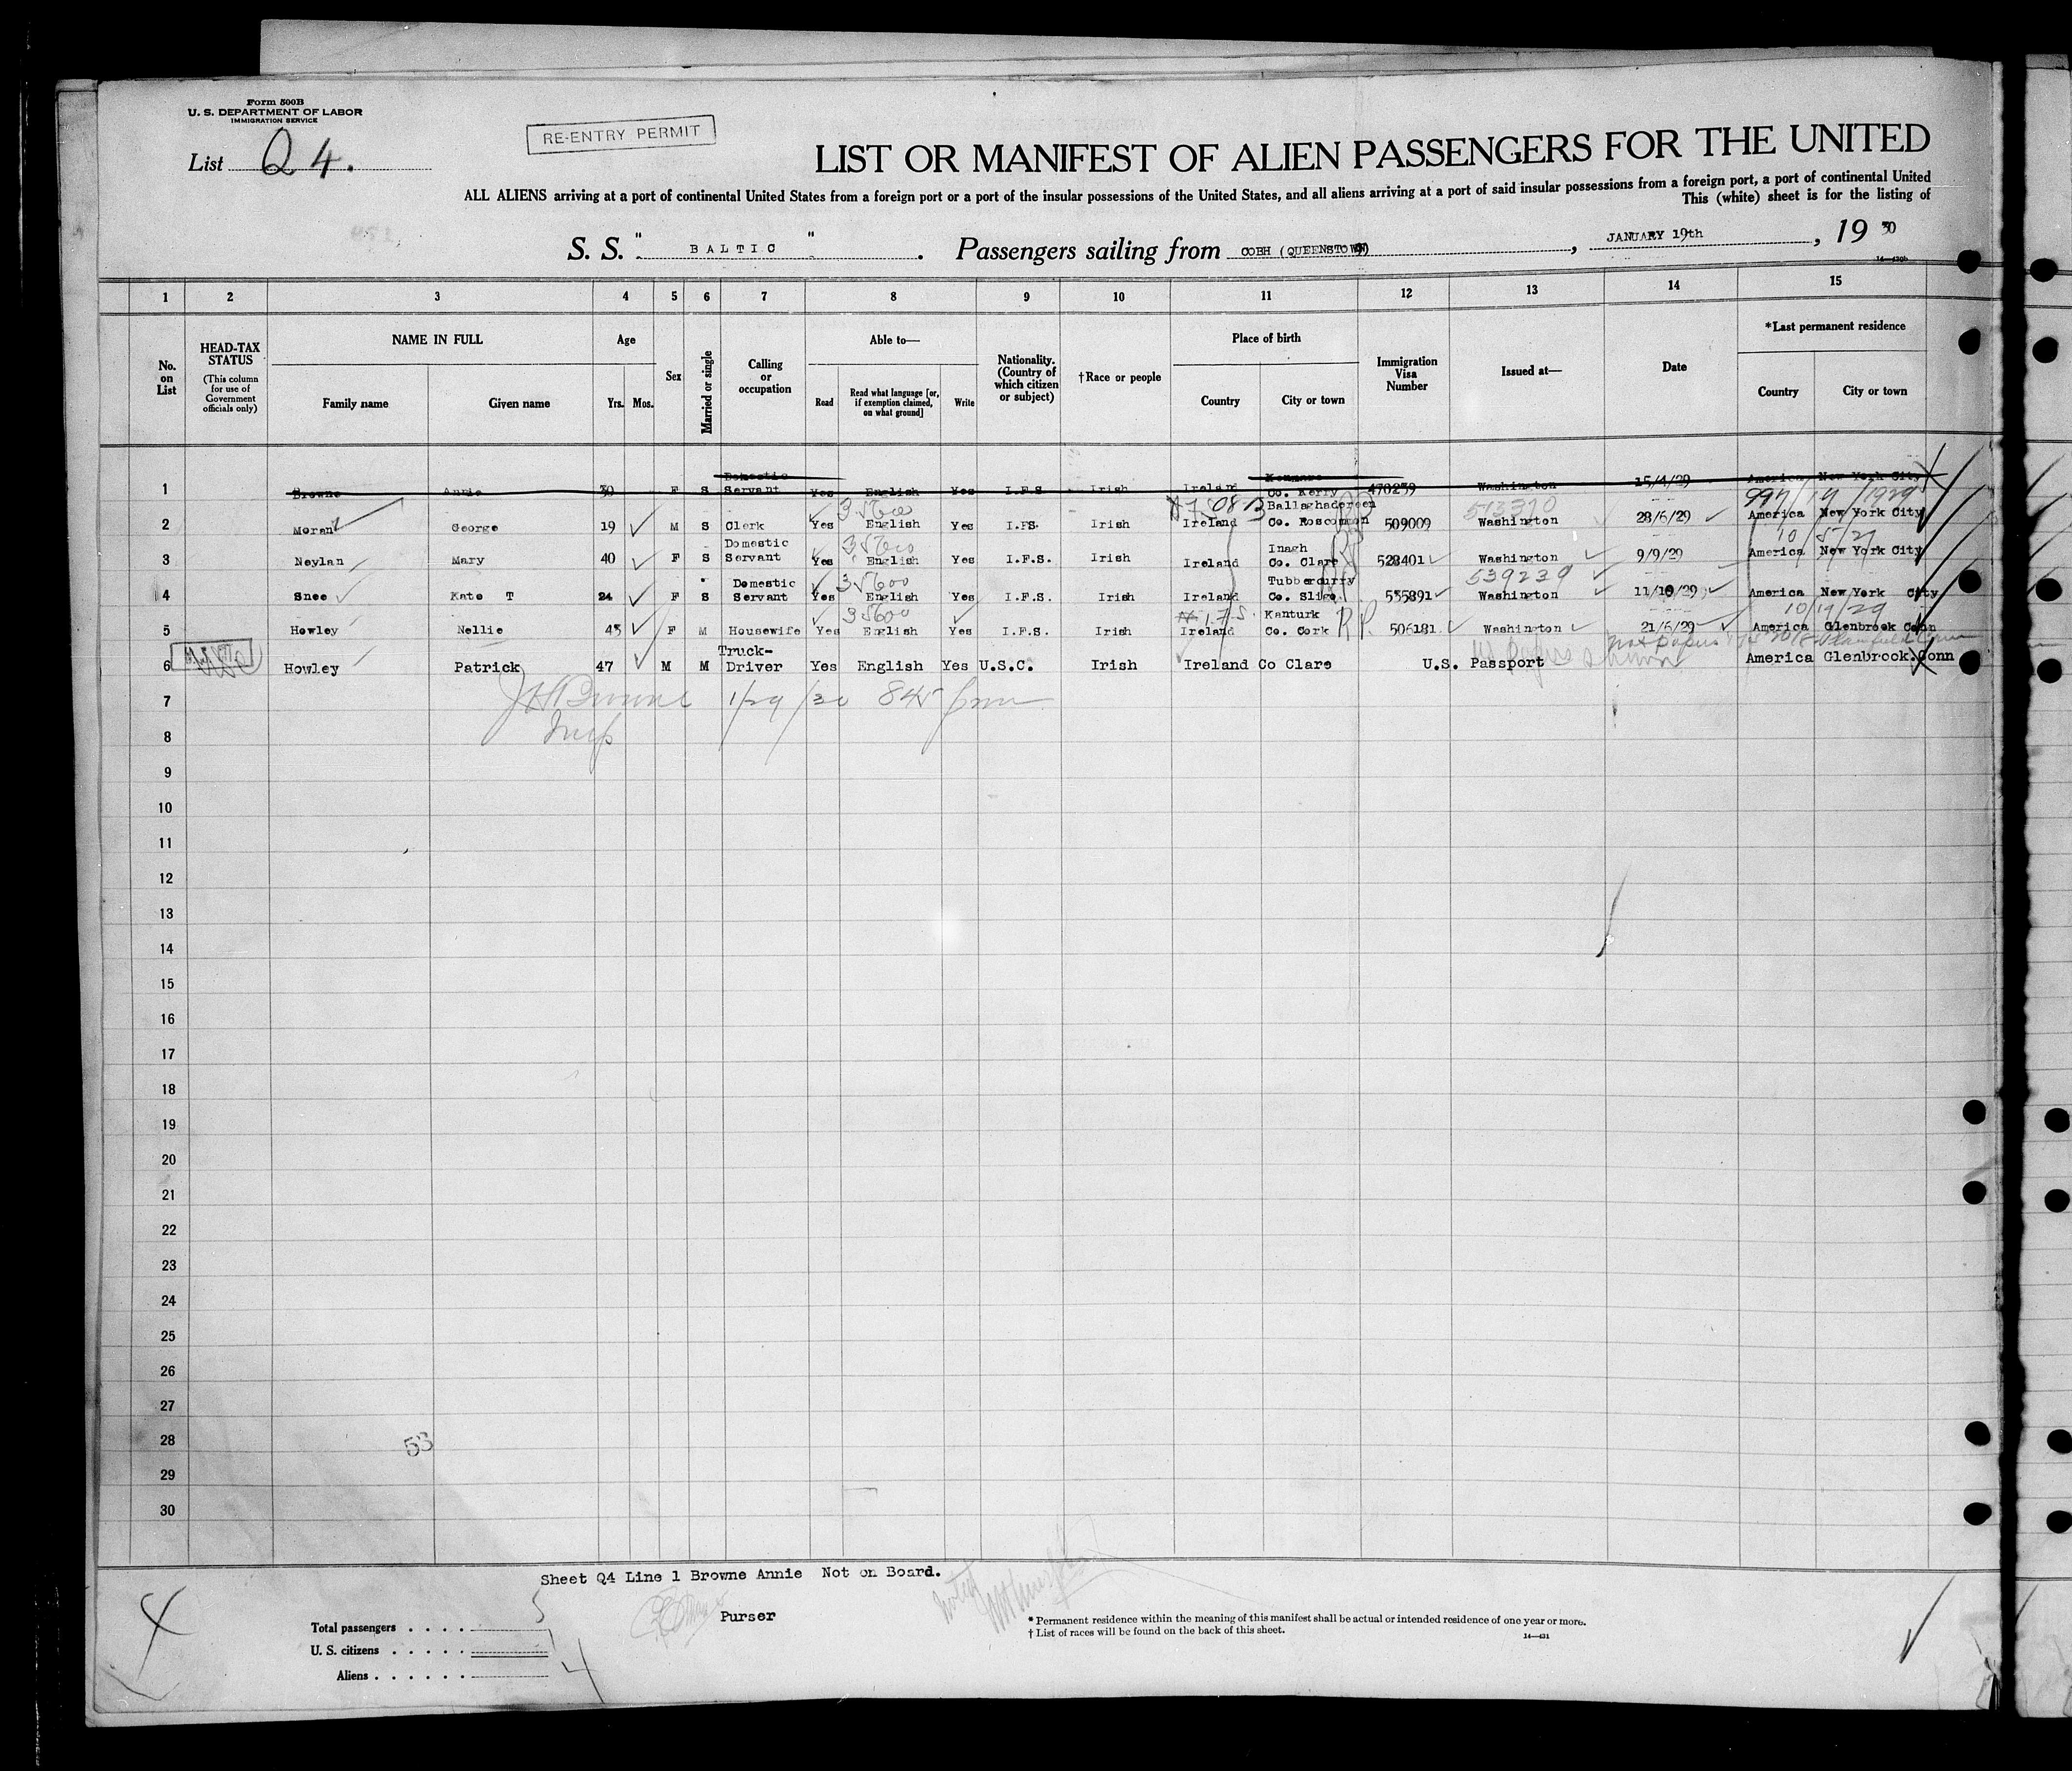 Form 500B
U. S. DEPARTMENT OF LABOR
IMMIGRATION SERVICE
List Q 4.
RE-ENTRY PERMIT
LIST OR MANIFEST OF ALIEN PASSENGERS FOR THE UNITED
ALL ALIENS arriving at a port of continental United States from a foreign port or a port of the insular possessions of the United States, and all aliens arriving at a port of said insular possessions from a foreign port, a port of continental United
This (white) sheet is for the listing of
S. S. " BALTIC ". Passengers sailing from COBH (QUEENSTOWN), JANUARY 19th, 19 30
1 2 3 4 5 6 7 8 9 10 11 12 13 14 15
No. on List
HEAD-TAX STATUS
(This column for use of Government officials only)
NAME IN FULL
Family name Given name
Age
Yrs. Mos.
Sex
Married or single
Calling or occupation
Able to—
Read
Read what language [or, if exemption claimed, on what ground]
Write
Nationality. (Country of which citizen or subject)
†Race or people
Place of birth
Country City or town
Immigration Visa Number
Issued at—
Date
*Last permanent residence
Country City or town
1 Browne Annie 30 F S Domestic Servant Yes English Yes I.F.S. Irish Ireland Kenmare Co. Kerry 470239 Washington 15/4/29 America New York City
997/14/1929
35600 513310
2 Moran George 19 M S Clerk Yes English Yes I.FS. Irish Ireland Ballaghadereen Co. Roscommon 509009 Washington 28/6/29 America New York City
3 Neylan Mary 40 F S Domestic Servant Yes English Yes I.F.S. Irish Ireland Inagh Co. Clare 528401 Washington 9/9/29 America New York City
35600 539239
4 Snee Kate T 24 F S Domestic Servant Yes English Yes I.F.S. Irish Ireland Tubbercurry Co. Sligo 535891 Washington 11/10/29 America New York City
35600 10/19/29
5 Howley Nellie 45 F M Housewife Yes English Yes I.F.S. Irish Ireland Kanturk Co. Cork R.P. 506181 Washington 21/6/29 America Glenbrook Conn
6 Howley Patrick 47 M M Truck-Driver Yes English Yes U.S.C. Irish Ireland Co Clare U.S. Passport America Glenbrook.Conn
7 J H Browne 1/29/30 845 pm
8 Insp
9
10
11
12
13
14
15
16
17
18
19
20
21
22
23
24
25
26
27
28
29
30
53
Sheet Q4 Line 1 Browne Annie Not on Board.
Purser
Total passengers . . . . 5
U. S. citizens . . . . . 1
Aliens . . . . . . 4
* Permanent residence within the meaning of this manifest shall be actual or intended residence of one year or more.
† List of races will be found on the back of this sheet.
14—431